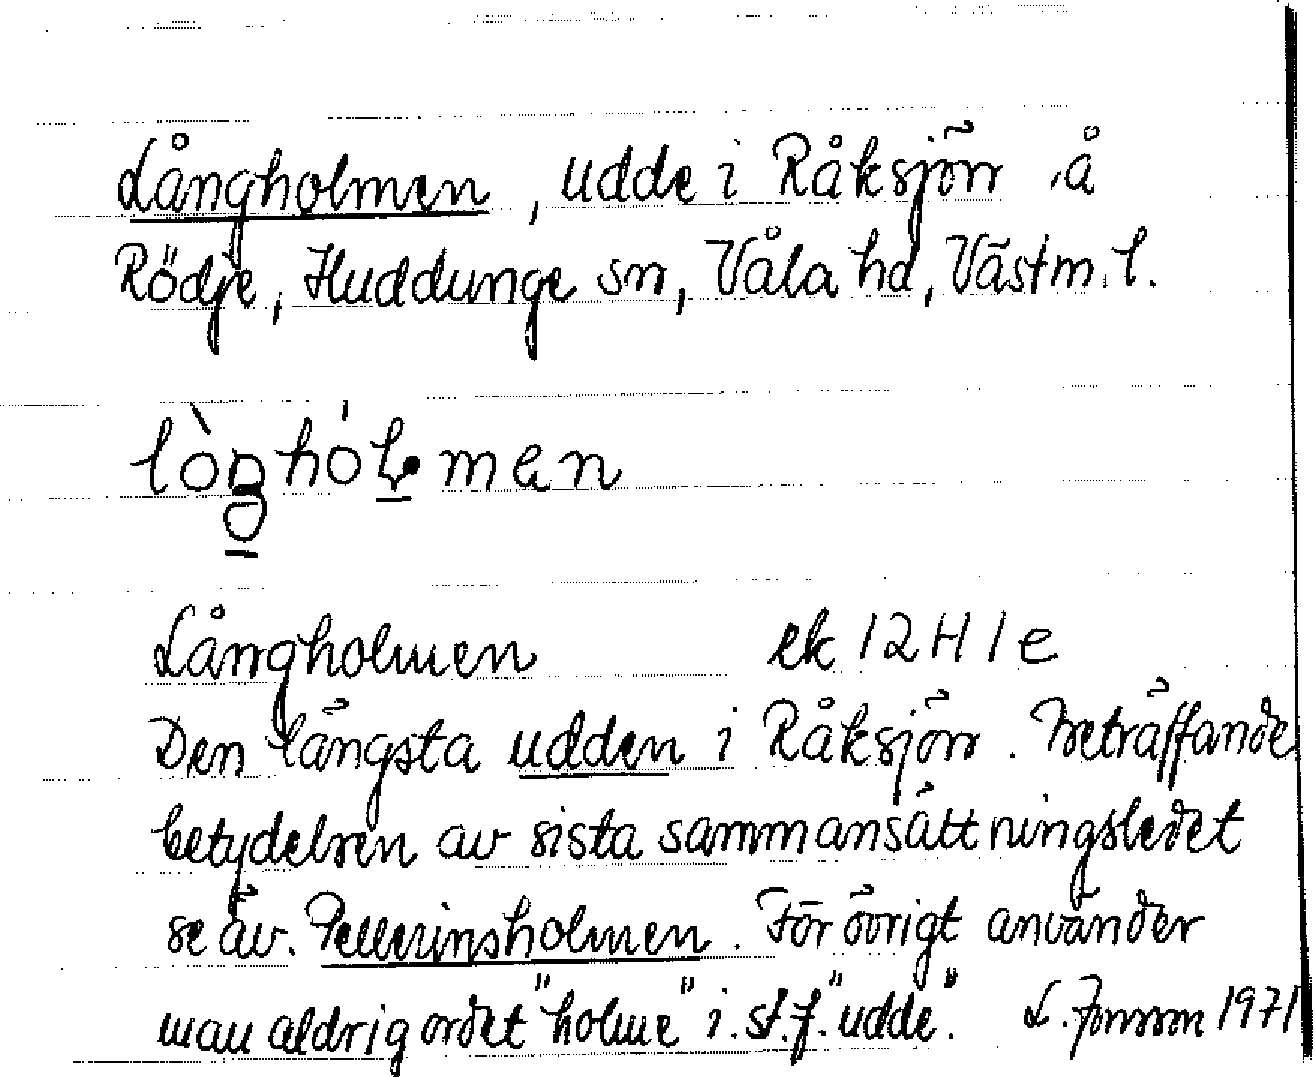 Långholmen, udde i Råksjön å
Rödje, Huddunge sn, Våla hd, Västm. l.
lòŋghól.men
Långholmen ek 12H1e
Den längsta udden i Råksjön. Beträffande
betydelsen av sista sammansättningsledet
se äv. Pellerinsholmen. För övrigt använder
man aldrig ordet "holme" i. st. f. "udde". L. Jonsson 1971